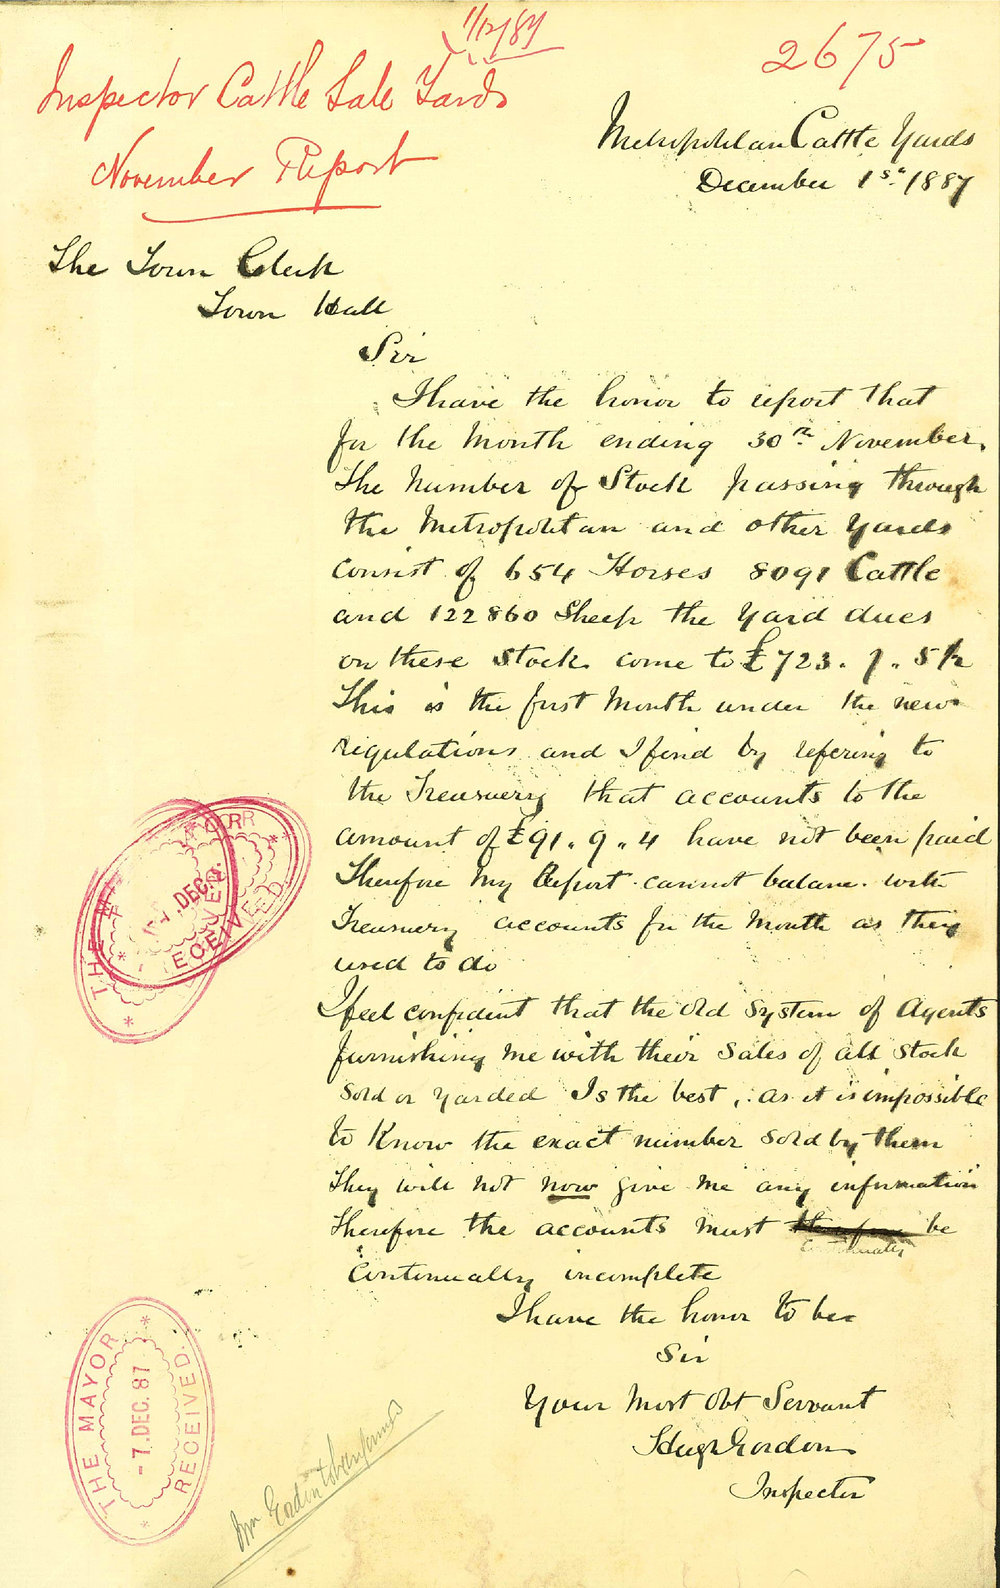 1/12/87
Inspector Cattle Sale Yards
November Report
2675
Metropolitan Cattle Yards
December 1st 1887
The Town Clerk
Town Hall
Sir
I have the honor to report that
for the Month ending 30th November,
the Number of Stock passing through
the Metropolitan and other Yards
consist of 654 Horses 8091 Cattle
and 122860 Sheep the Yard dues
on these Stock come to £723. 7. 5½
This is the first Month under the new
regulations and I find by refering to
the Treasurery that accounts to the
amount of £91. 9. 4 have not been paid
Therefore My Report cannot balance with
Treasurery accounts for the Month as they
used to do
I feel confident that the Old System of Agents
furnishing Me with their Sales of all Stock
Sold or Yarded Is the best, as it is impossible
to Know the exact number Sold by them
They will not now give Me any information
therefore the accounts Must therefore be
continually
Continually incomplete
I have the honor to be
Sir
Your Most Obt Servant
Hugh Gordon
Inspector
THE
DEC.
RECEIVED
THE MAYOR
-7.DEC.87
RECEIVED.
Mr Gordon